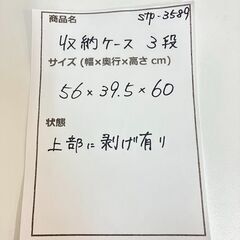 商品名 stp-3589
収納ケース 3段
サイズ (幅×奥行×高さ cm)
56×39.5×60
状態
上部に剥げ有り